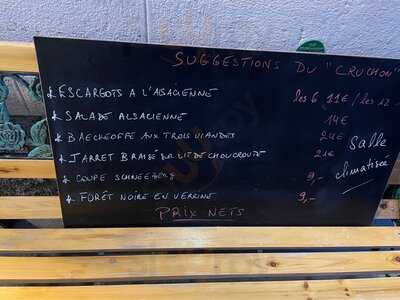 SUGGESTIONS DU "CRUCHON"
* ESCARGOTS A L'ALSACIENNE les 6 11€ / les 12
* SALADE ALSACIENNE 14€
* BAECKEOFFE AUX TROIS VIANDES 24€
* JARRET BRAISÉ SUR LIT DE CHOUCROUTE 21€
* COUPE 9,-
* FORÊT NOIRE EN VERRINE 9,-
Salle
climatisée
PRIX NETS